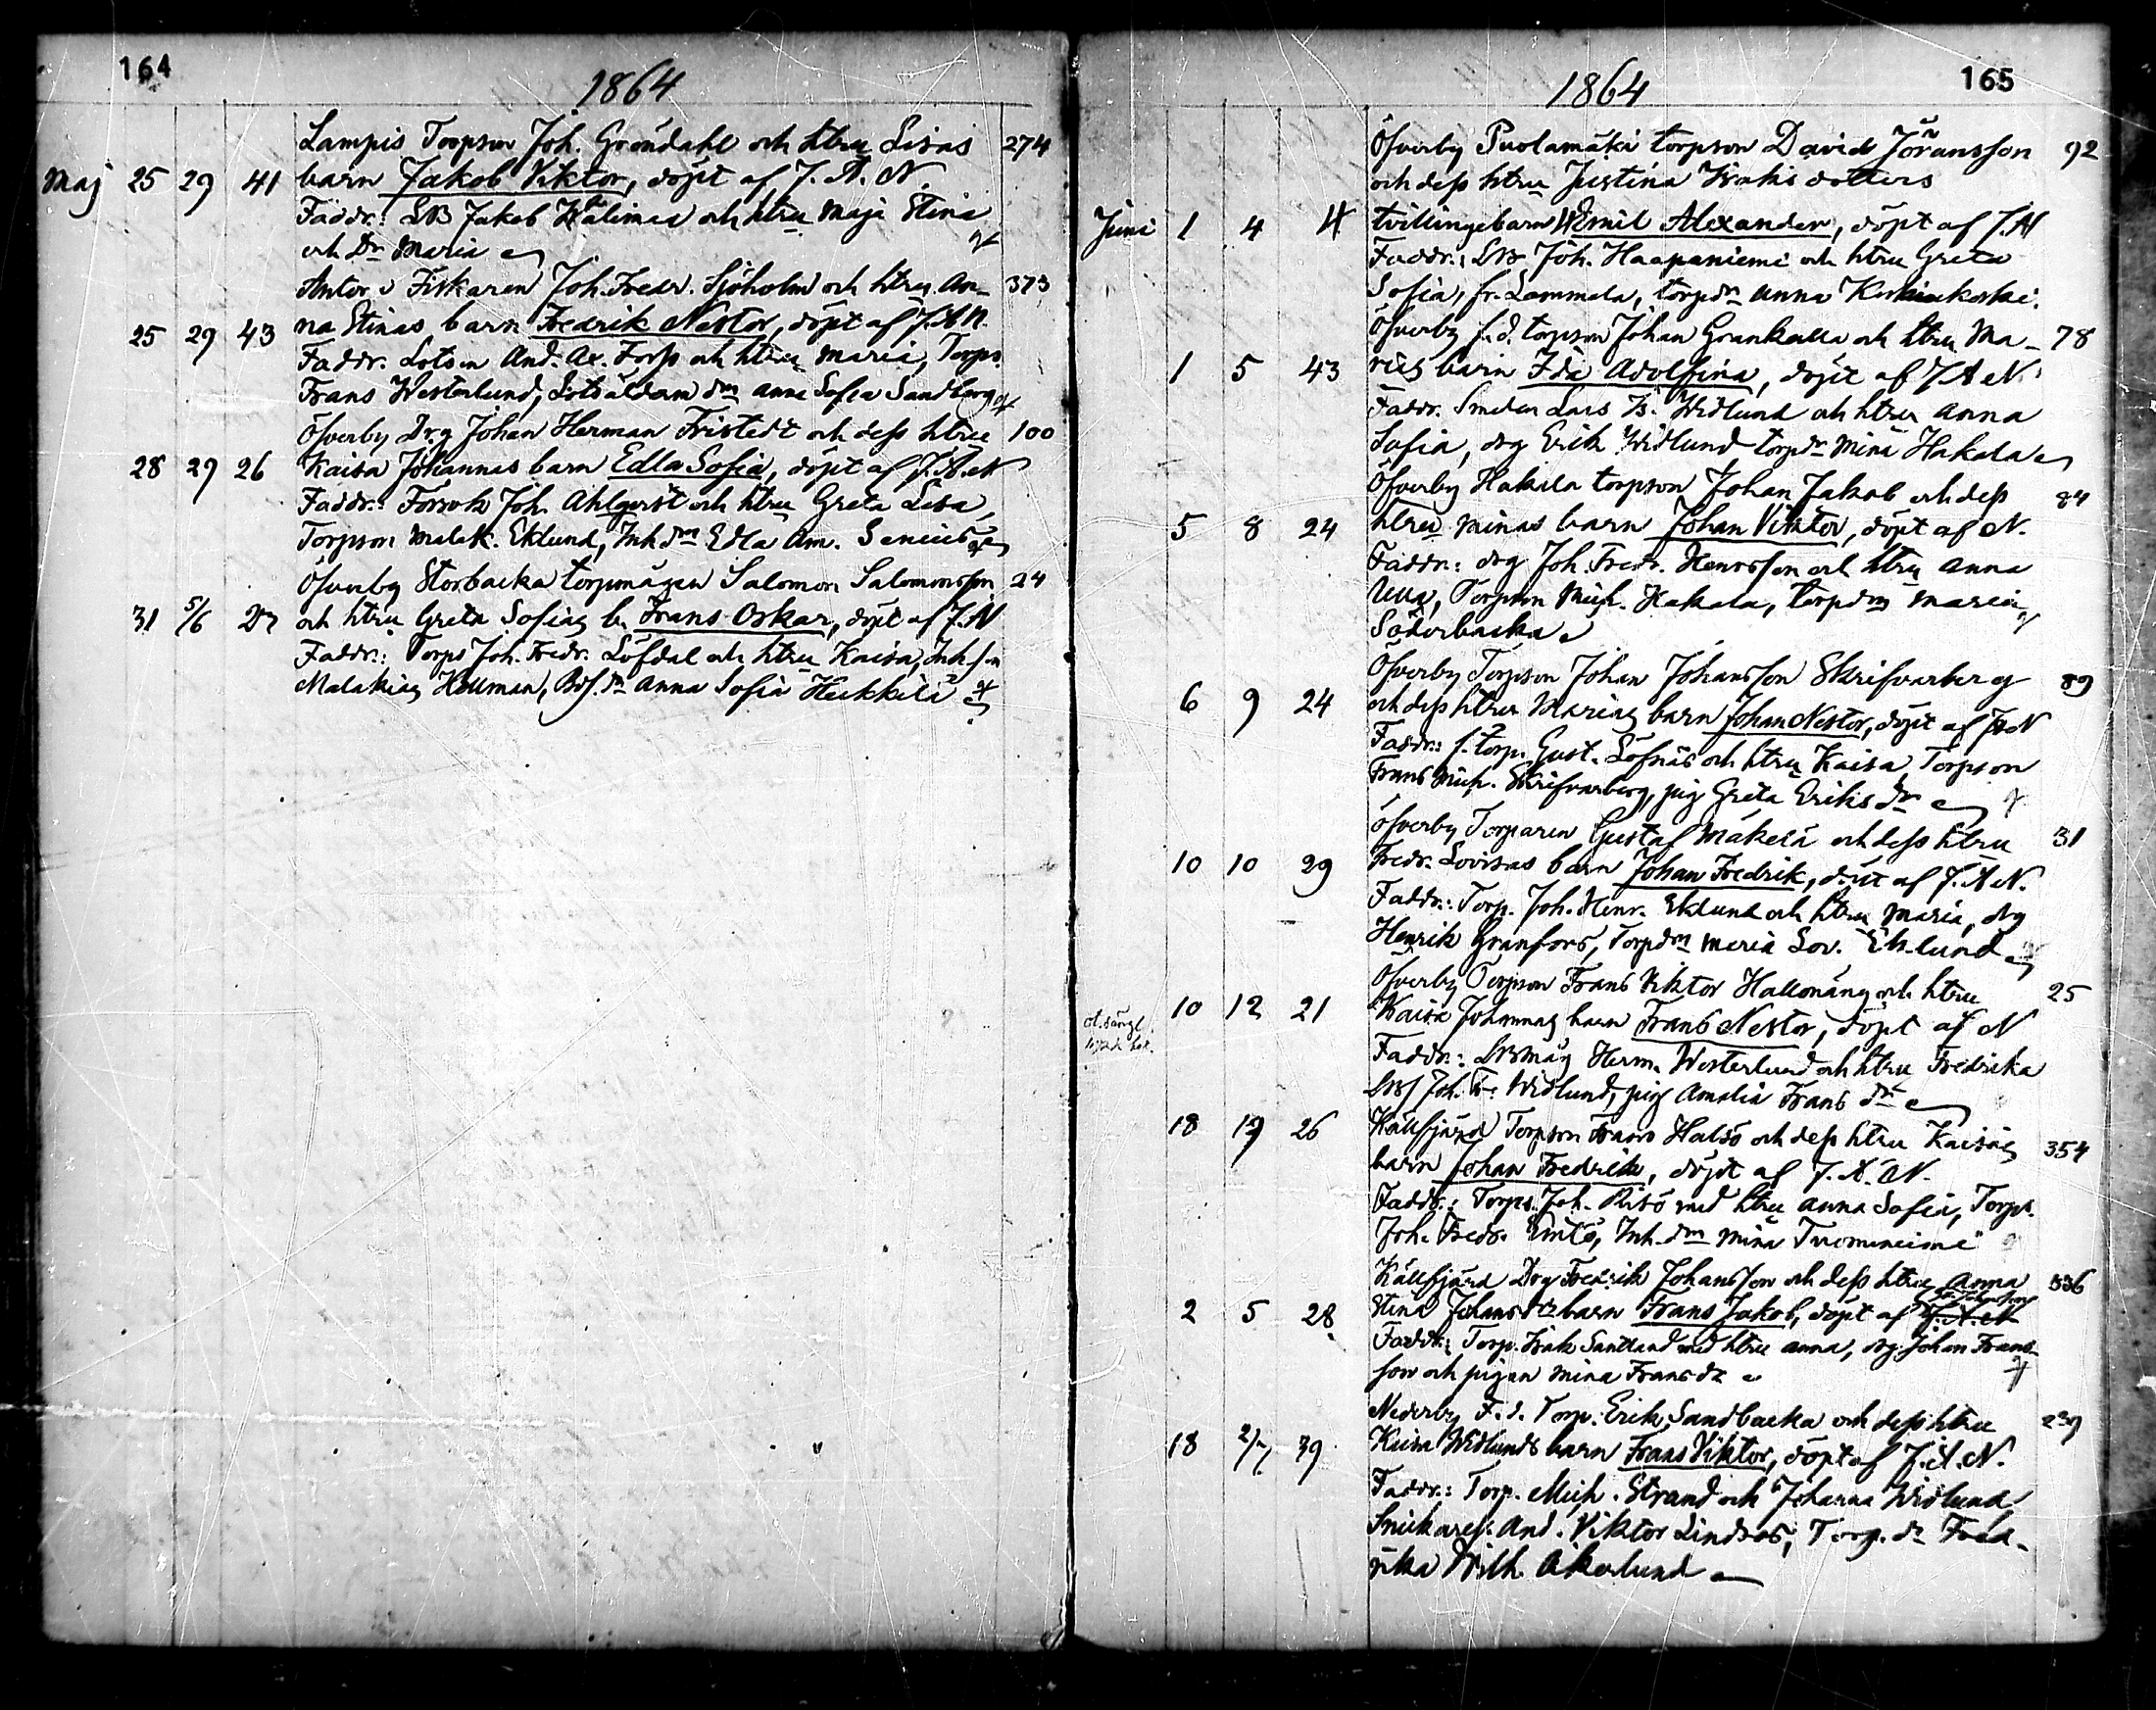 164
1864
Lampis Torpson Joh. Gröndahl och htru Lisas 274
Maj 25 29 41 barn Jakob Viktor, döpt af J. A. N.
Faddr.: LB Jakob Wälimaa och htru Maja Stina
och Dr Maria
Antor Fiskaren Joh. Fredr. Sjöholm och htru An- 373
25 29 43 na Stinas barn Fredrik Nestor, döpt af J. A N.
Faddr. Lotsen And. Ax. Forss och htru Maria, Torps.
Frans Westerlund, Lotsåldam dm Anna Sofia Sandberg
Öfverby Drg Johan Herman Fristedt och dess htru 100
28 29 26 Kaisa Johannas barn Edla Sofia, döpt af J. A. N
Faddr.: Torpson Joh. Ahlqvist och htru Greta Lisa,
Torpson Malak. Eklund, Inh dm Edla Am. Senius
Öfverby Storbacka torpmågen Salomon Salomonsson 24
31 5/6 27 och htru Greta Sofias b. Frans Oskar, döpt af J. N
Faddr.: Torps Joh. Fredr. Löfdal och htru Kaisa, Inh. son
Malakias Hellman, Bdf. dr Anna Sofia Heikkilä
165
1864
Öfverby Puolamäki torpson David Göransson 92
och dess htru Justina Isaks dotters
Juni 1 4 tvillingebarn Emil Alexander, döpt af J. N
Faddr.: LB Joh. Haapaniemi och htru Greta
Sofia, fr. Lammela, torpdr Anna Keskiakoski.
Öfverby f. d. torpson Johan Grankulla och htru Ma- 78
1 5 43 rias barn Ida Adolfina, döpt af J. A N.
Faddr. Smeden Lars W. Widlund och htru Anna
Sofia, drg Erik Widlund torpdr Mina Hakala
Öfverby Hakala torpson Johan Jakob och dess 84
5 8 24 htru Minas barn Johan Viktor, döpt af N.
Faddr.: drg Joh. Fredr. Henrsson och htru Anna
Ulla, Torpson Mich. Hakala, torpdm Maria
Söderbacka
Öfverby Torpson Johan Johansson Skrifvarberg 89
6 9 24 och dess htru Marias barn Johan Nestor, döpt af J A N
Faddr.: f. torp. Gust. Löfnäs och htru Kaisa Torpson
Frans Mich. Skrifvarberg, pig Greta Eriks dr
Öfverby Torparen Gustaf Mäkelä och dess htru 31
10 10 29 Fredr. Lovisas barn Johan Fredrik, döpt af J. A N.
Faddr.: Torp. Joh. Henr. Eklund och htru Maria, drg
Henrik Granfors, Torpdm Maria Lov. Eklund
Öfverby Torpson Frans Viktor Hallonäng och htru 25
10 12 21 Kaisa Johannas barn Frans Nestor, döpt af N
Faddr.: LBmåg Herm. Westerlund och htru Fredrika
LBs Joh. W. Widlund, pig Amalia Frans dr
18 19 26 Källfjärd Torpson Frans Halsö och dess htru Kaisas 354
barn Johan Fredrik, döpt af J. A. N.
Faddr.: Torps. Joh. Risö med htru Anna Sofia, Torps.
Joh. Fredr. Untö, Inh. dm Mina Tuomineimi
Källfjärd Drg Fredrik Johansson och dess htru Anna 336
2 5 28 Stina Johans dr barn Frans Jakob, döpt af J. A. N
Faddr.: Torp. Isak Sandlund med htru Anna, drg. Johan Frans-
son och pigan Mina Frans dr
Nederby F. d. Torp. Erik Sandbacka och dess htru 239
18 2/7 39 Kaisa Widlunds barn Frans Viktor, döpt af J. A. N.
Faddr.: Torp. Mich. Strand och Johanna Widlund
Snickares. And. Viktor Lindroos, Torp. dr Fred-
rika Wilh. Åkerlund